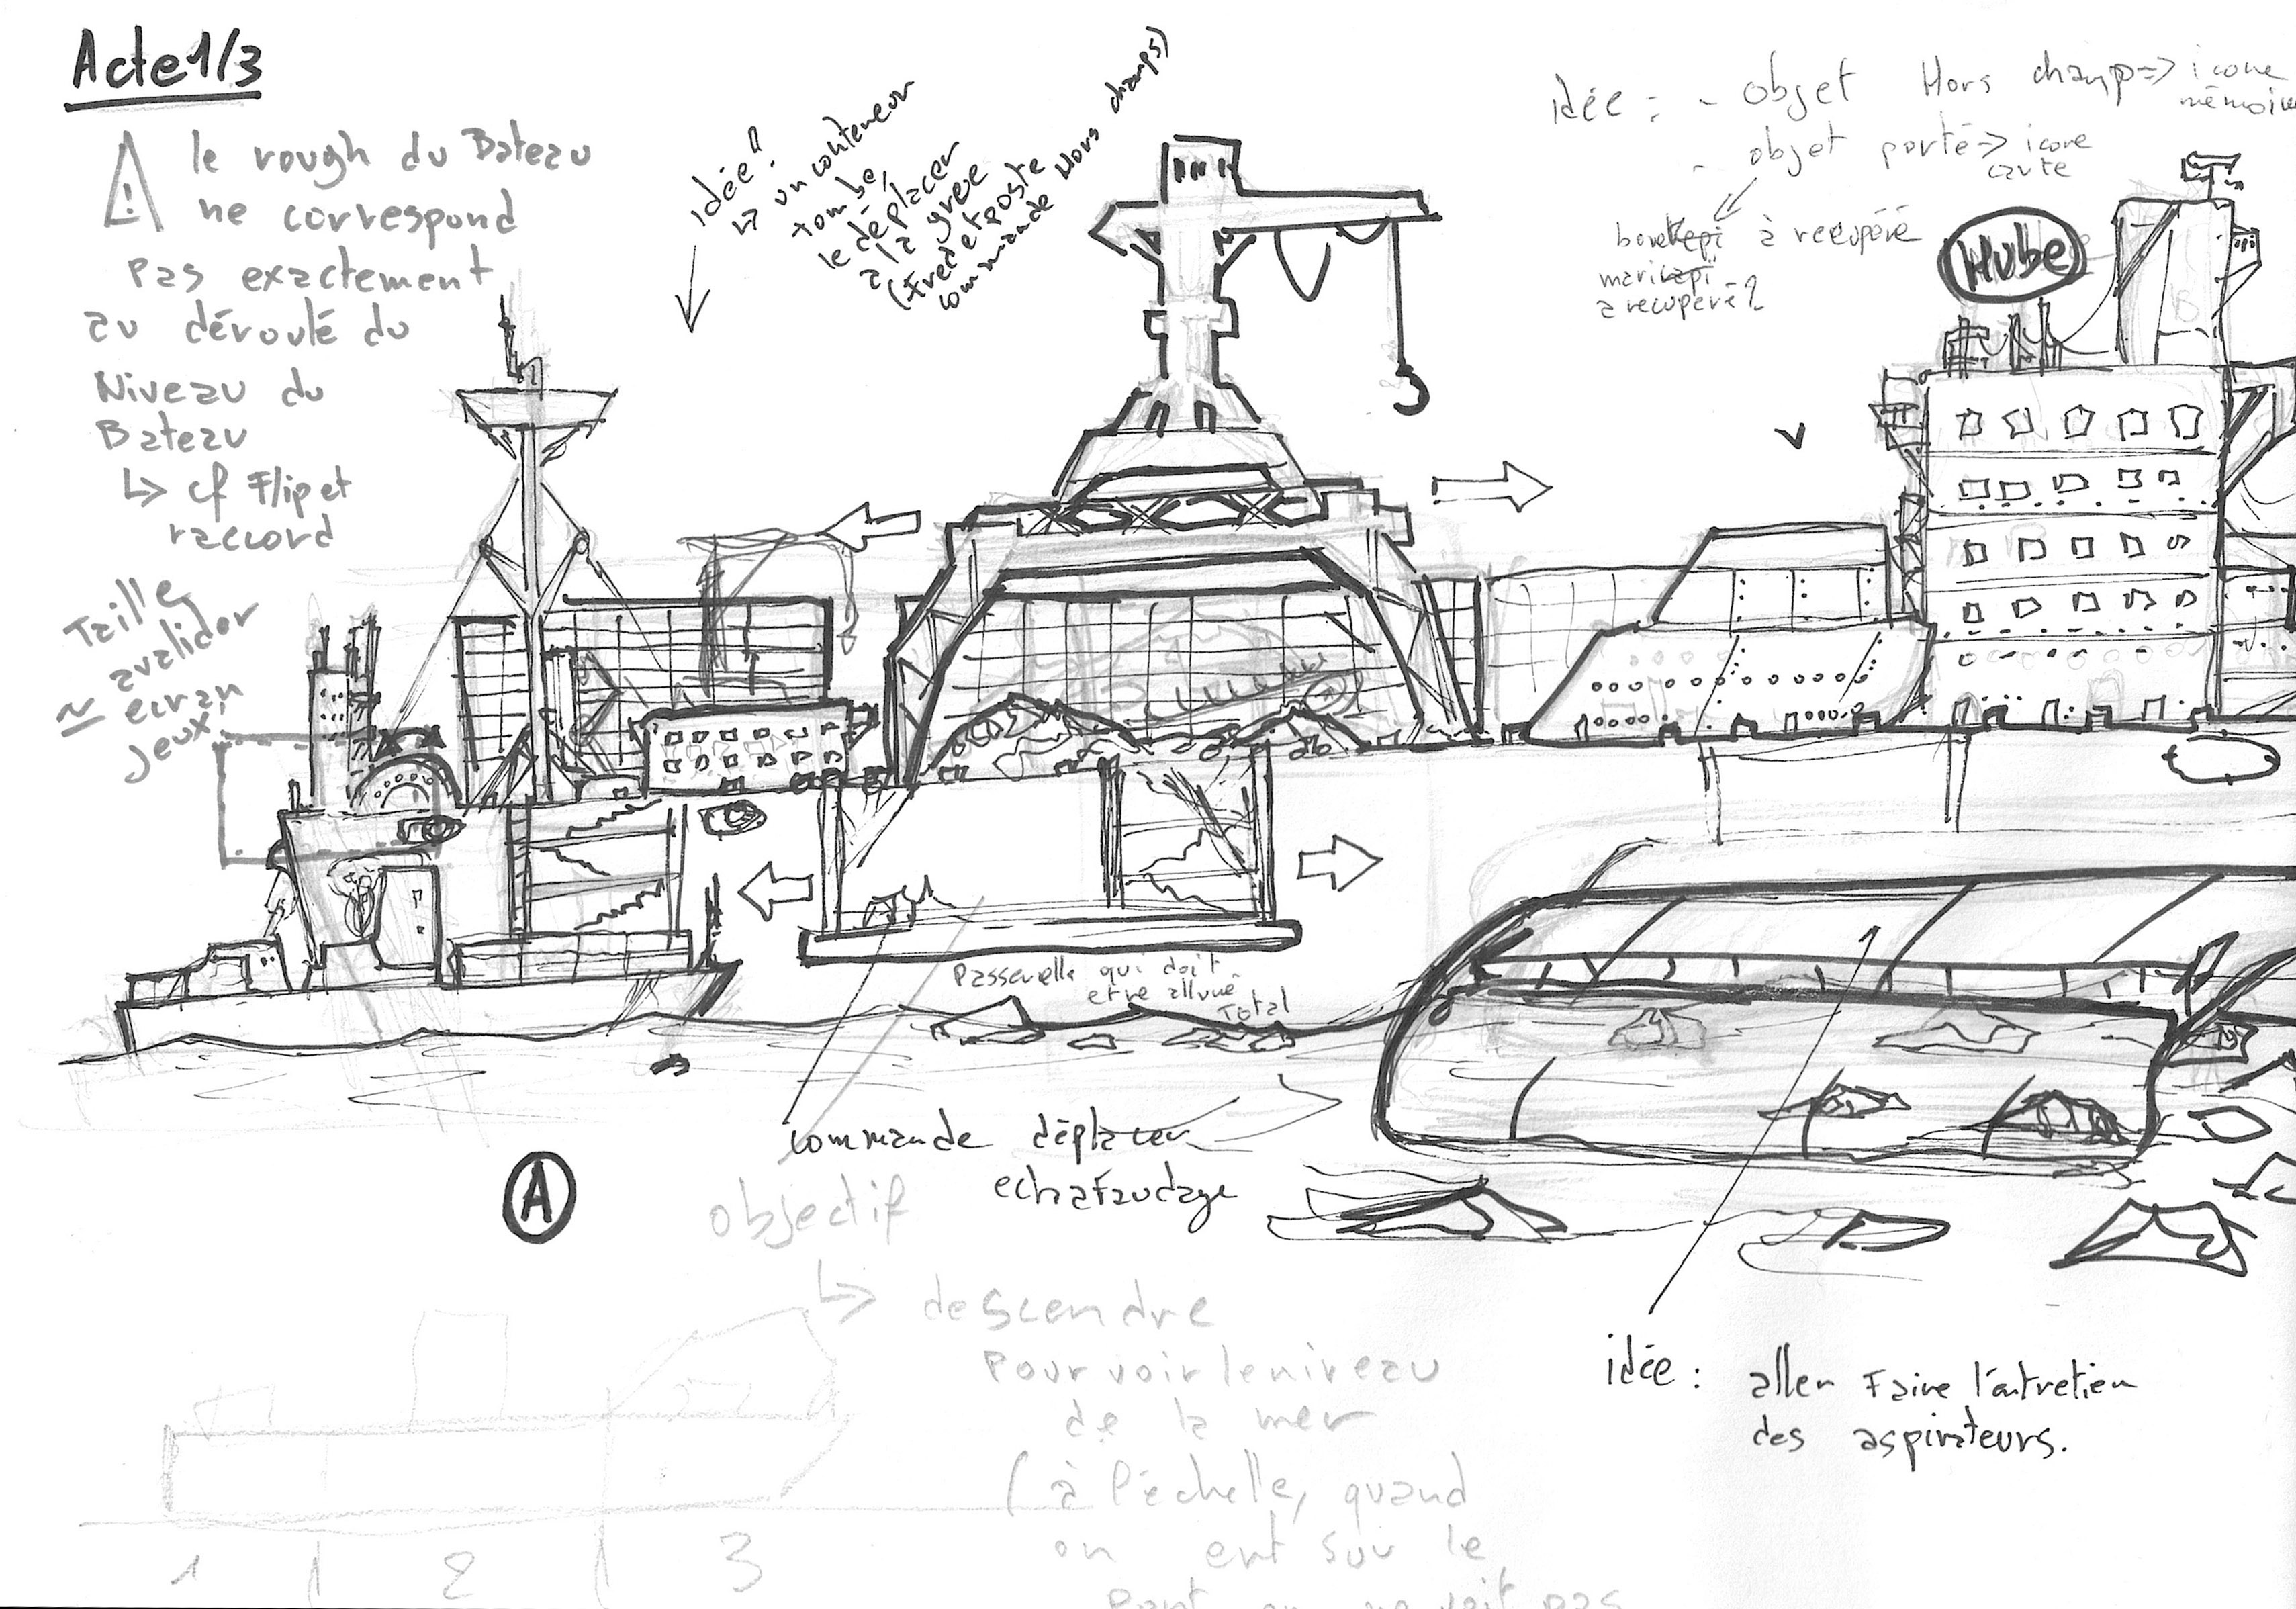 Acte 1/3
le rough du Bateau
ne correspond
pas exactement
au déroulé du
Niveau du
Bateau
↳ cf Flip et
raccord
Taille
a valider
≈ ecran
jeux
idée!!
↳ un conteneur
tombe,
le déplacer
à la grue
(Fred et poste
commande Hors champs)
idée : - objet Hors champ => icone
mémoire
- objet porté => icone
carte
à recupéré
a recuperé ?
Hube
Passerelle qui doit
etre allumé
Total
commande déplacer
echaafaudage
A
objectif
↳ descendre
pour voir le niveau
de la mer
(à l'échelle, quand
on est sur le
pont on ne voit pas
idée : aller Faire l'entretien
des aspirateurs.
1 2 3